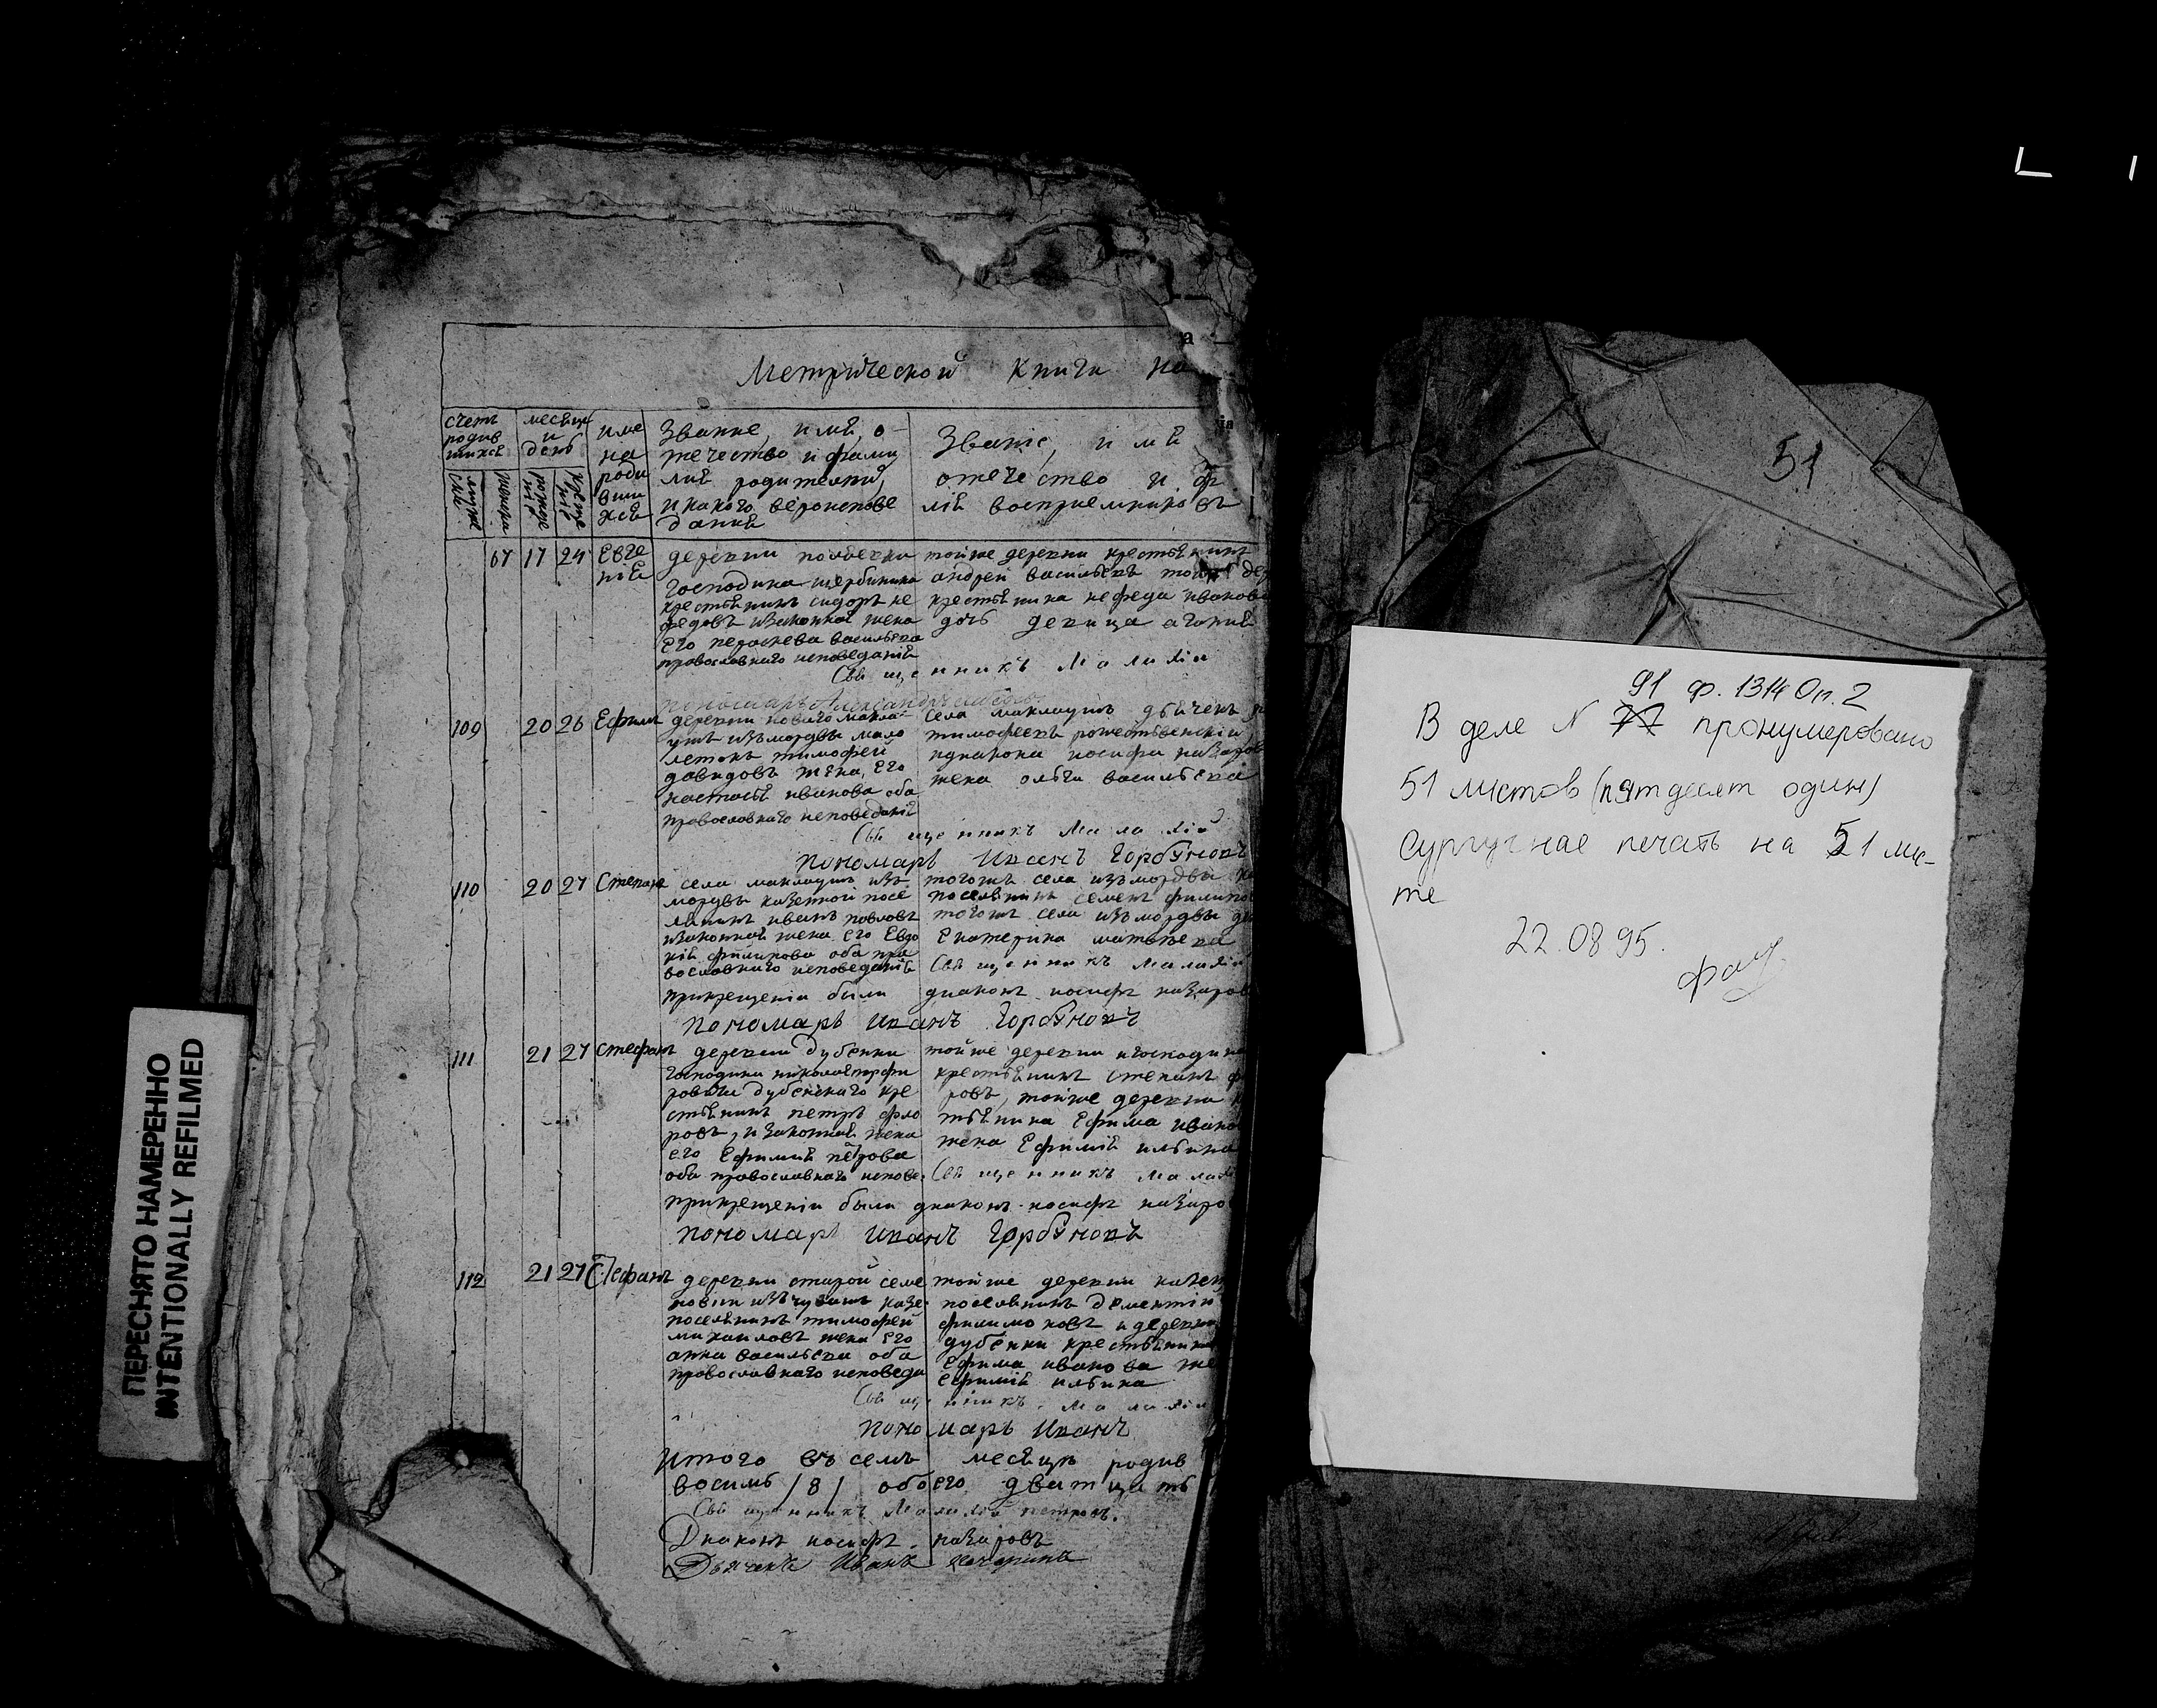 Метрической Книги на
счетъ родив шихсѣ
мужеска
женска
месѣцъ и день
рожде ніѣ
креще ніѣ
име на роди вши хсѣ
Званіе, имѣ, о-
течество и фами
лиѣ родителей,
и какого вероиспове
даниѣ
Званіе, имѣ
отечество и ф
ліѣ восприемниковъ
67 17 24 Евге ніѣ
деревни
господина щербинина
крестьѣнинъ сидоръ не
федовъ изаконнаѣ жена
его васильева
православнаго исповеданіѣ
тойже деревни крестьѣнинъ
андрей васильевъ тойже де
крестьѣнина нефеда иванова
дочь девица
Свѣщенникъ Малахій
пономарь Александръ
109 20 26 Ефимъ
деревни новаго макла
ушъ изъмордвы мало
летокъ тимофей
давидовъ жена, его
настасьѣ иванова оба
православнаго исповеданіѣ
села маклаушъ дьѣчекъ
тимофеевъ рожественскій
идиакона иосифа назаров
жена ольга васильева
Свѣщенникъ Малахій
пономарь Иванъ Горбуновъ
110 20 27 Степанъ
села маклаушъ изъ
мордвы казенной посе
лѣнинъ иванъ павловъ
изаконнаѣ жена его Евдо
кіѣ филипова оба пра
вославнаго исповеданіѣ
тогожъ села изъмордвы
поселѣнинъ семенъ филипов
тогожъ села изъмордвы
Екатерина матвеева
Свѣщенникъ Малахій
прикрещеніи были диаконъ иосифъ назаров
пономарь Иванъ Горбуновъ
111 21 27 стефанъ
деревни дубенки
господина николаѣ порфи
ровича дубенскаго кре
стьѣнинъ петръ фло
ровъ, и законнаѣ жена
его Ефимиѣ петрова
оба православнаго испове.
тойже деревни игосподина
крестьѣнинъ степанъ ф
ровъ, тойже деревни
тьѣнина Ефима ивано
жена Ефимиѣ ильина
Свѣщенникъ Малахій
прикрещеніи были диаконъ иосифъ назаро
пономарь Иванъ Горбуновъ
112 21 27 Стефанъ
деревни старой семе
новки изъ чувашъ казе
поселѣнинъ тимофей
михаиловъ жена его
анна васильева оба
православнаго исповеда
тойже деревни казен
поселѣнинъ дементій
филимоновъ и деревни
дубенки крестьѣнина
Ефима иванова же
Ефимиѣ ильина
Свѣщенникъ Малахій
пономарь Иванъ
Итого въ семъ месѣцѣ родив
восимь /8/ обоего дватцать
Свѣщенникъ Малахій петровъ.
Диаконъ иосифъ назаровъ
Дьячекъ Иванъ
ПЕРЕСНЯТО НАМЕРЕННО
INTENTIONALLY REFILMED
51
91 ф. 1314 Оп. 2
В деле N 77 пронумеровано
51 листов (пятдесят один)
Сургучная печать на 51 лис-
те
22.08 95.